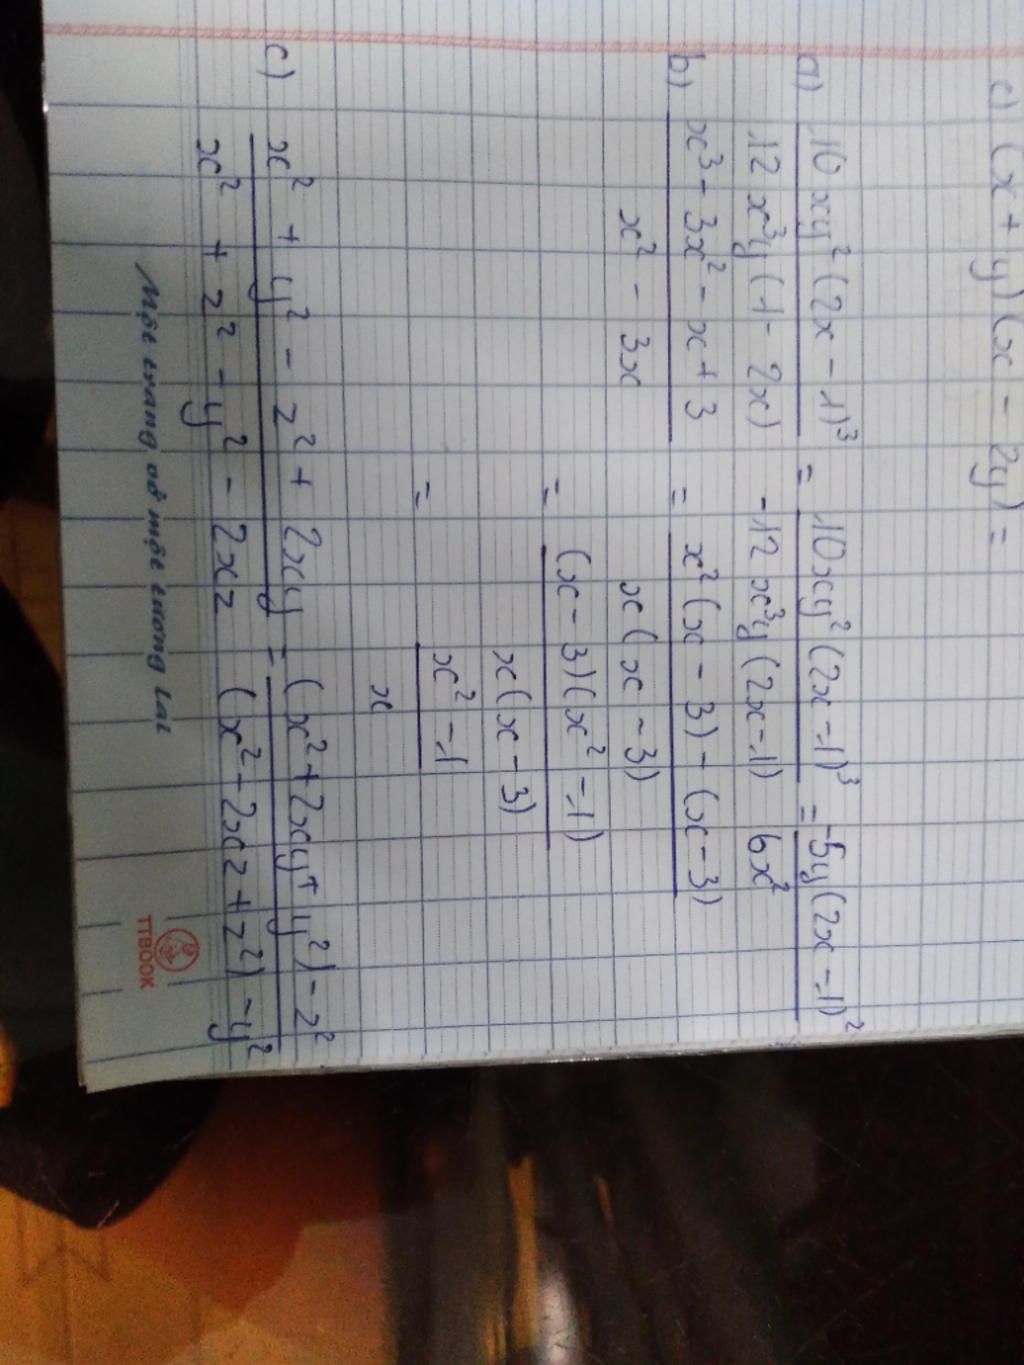 c) (x + y)(x - 2y) =
a) 10xy²(2x - 1)³ = 10xy²(2x - 1)³ = -5y(2x - 1)²
12x³y(1 - 2x) -12x³y(2x - 1) 6x²
b) x³ - 3x² - x + 3 = x²(x - 3) - (x - 3)
x² - 3x x(x - 3)
= (x - 3)(x² - 1)
x(x - 3)
= x² - 1
x
c) x² + y² - z² + 2xy = (x² + 2xy + y²) - z²
x² + z² - y² - 2xz (x² - 2xz + z²) - y²
Một trang vở một tương lai
TTBOOK